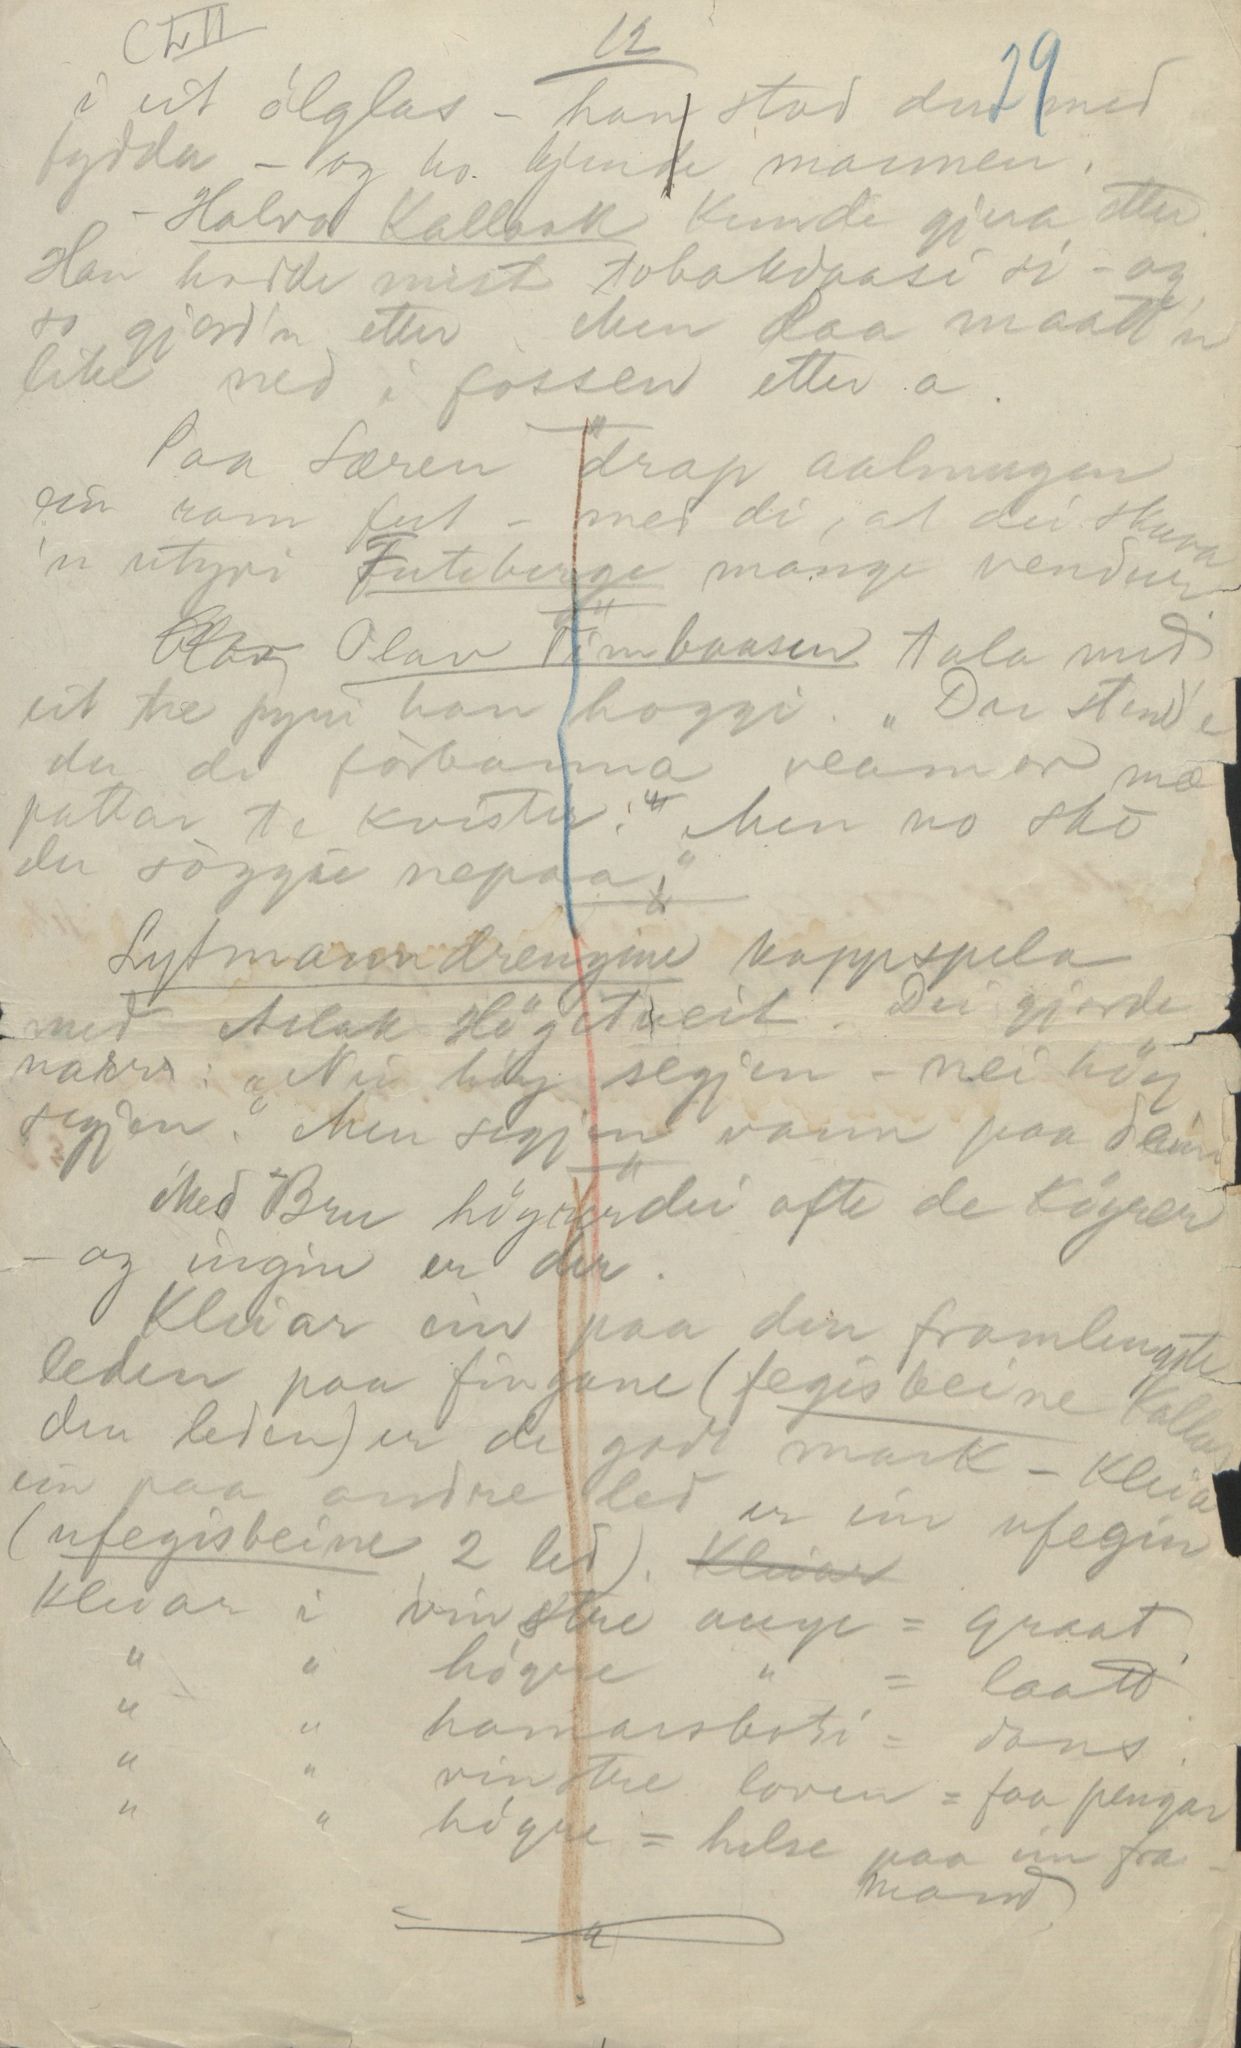 CLII
12
29
i eit ölglas – han stod der med
fydda – og ho kjende mannen.
– Halvor Kallaak kunde gjera etter.
Han hadde mist tobakdaasi si – og
so gjord'n etter. Men daa maatt'n
like ned i fossen etter a.
"
Paa Særen drap aalmugen
ein ram fut – med di, at dei skuva
'n utyvi Futeberge mange vendur.
"
Olav Olav Timbaasen tala med
eit tre fyrr han hoggi. „Der stend'e
du di förbanna veamor mæ
pattar te kvistir!" Men no sko
du söggje nepaa!"
Lytmanndrengjine kappspela
med Aslak Högetveit. Dei gjorde
narr: „Nei höy segjen – nei höy
segjen." Men segjen vann paa deim
"
Med Bru höyrer dei ofte de köyrer
– og ingin er der.
Kleiar ein paa den framlengste
leden paa fingane (fegisbeine kallar
den leden) er de godt mark – kleia
ein paa andre led er ein ufegin
(ufegisbeine 2 led). Kleiar
kleiar i vinstre auge = graat.
" " högre " = laatt
" " hamarsboti = dans.
" " vinstre loven = faa pengar
" " högre = helse paa ein fra-
mand
"